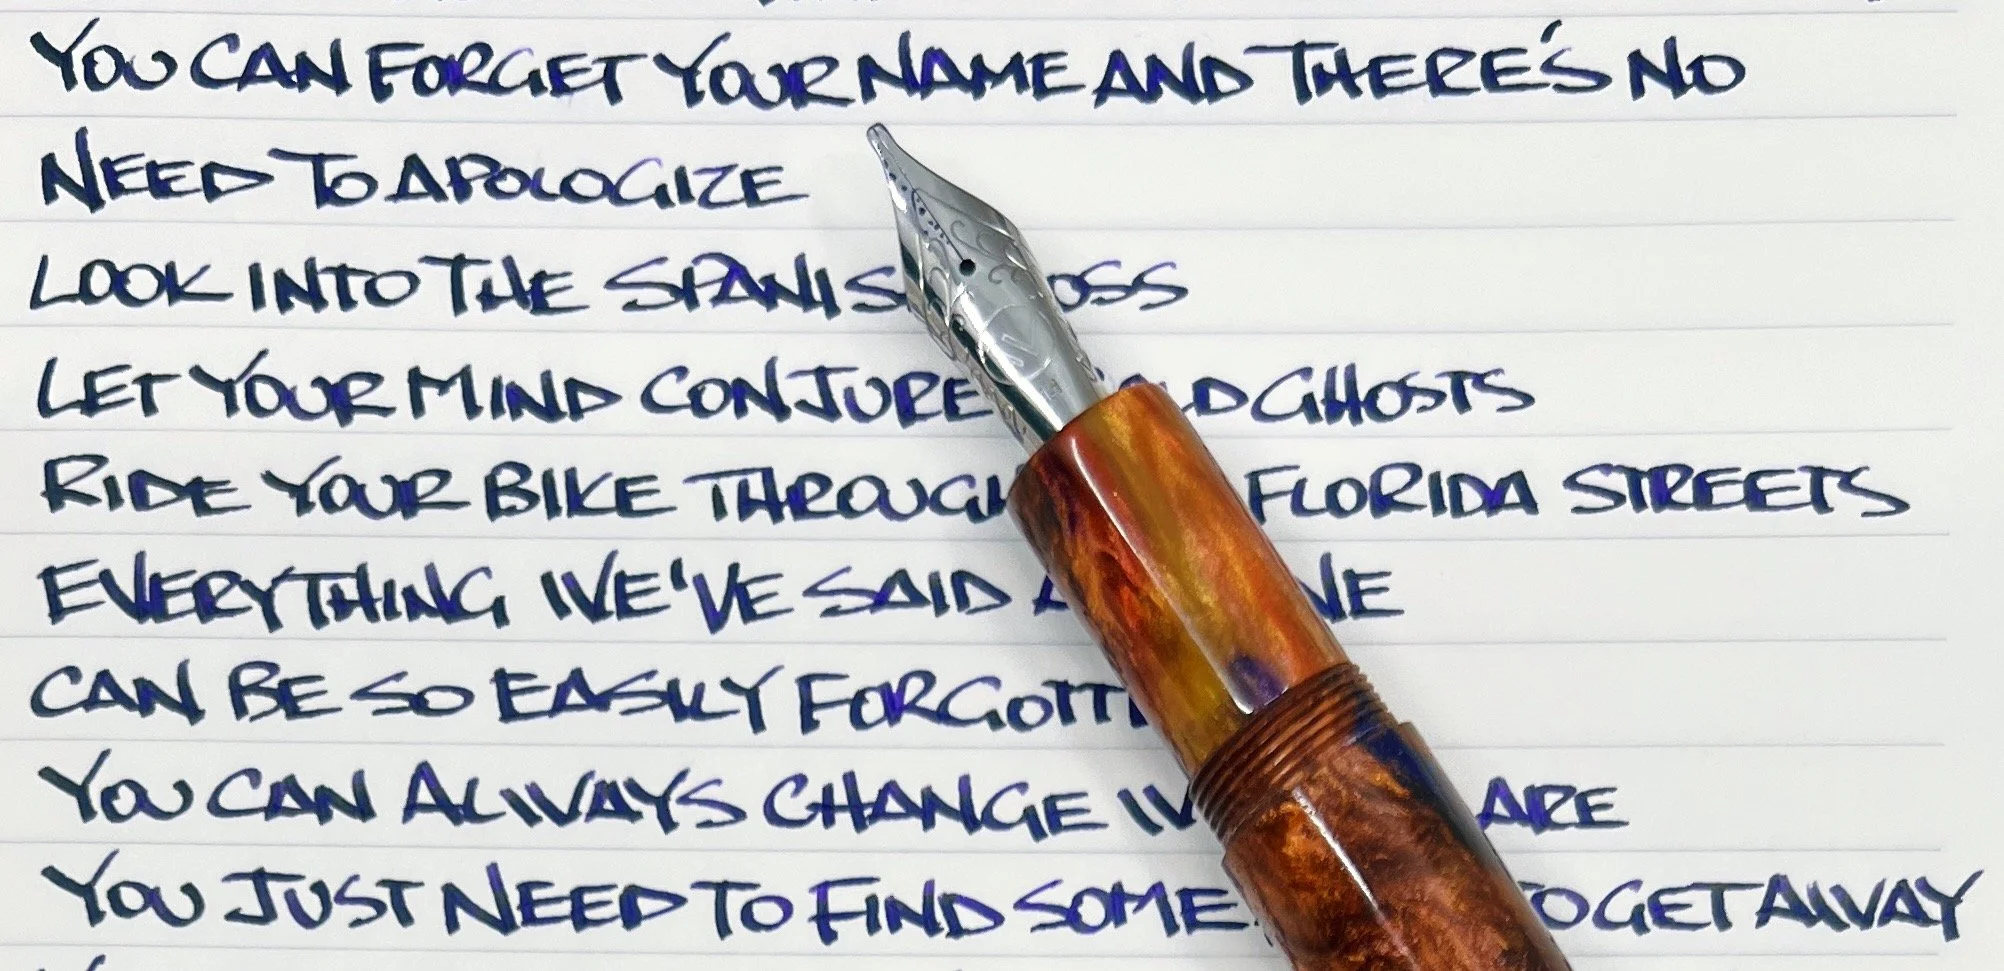 YOU CAN FORGET YOUR NAME AND THERE'S NO
NEED TO APOLOGIZE
LOOK INTO THE
LET YOUR MIND CONJURE GHOSTS
RIDE YOUR BIKE FLORIDA STREETS
EVERYTHING WE'VE SAID
CAN BE SO EASILY
YOU CAN ALWAYS CHANGE ARE
YOU JUST NEED TO FIND GET AWAY